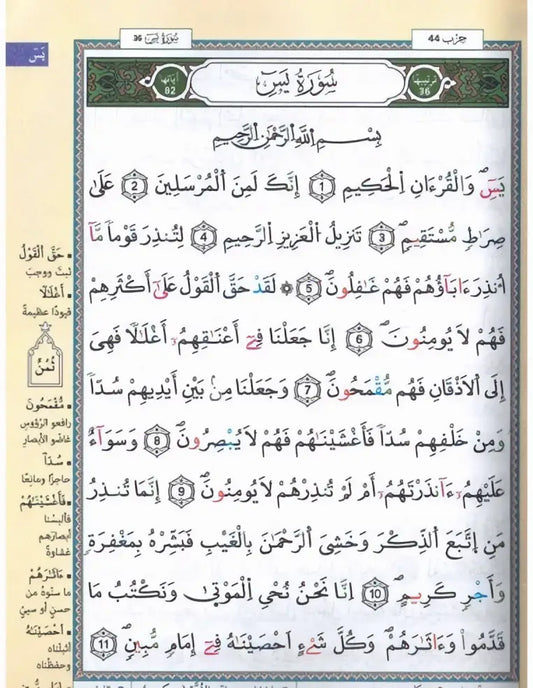 سُورَةُ يَسِٓ 36
حزب 44
يَسِٓ
ترتيبها 36
سُورَةُ يَسِٓ
آياتها 82
بِسْمِ اِللَّهِ اِلرَّحْمَٰنِ اِلرَّحِيمِ
يَسِٓ وَالْقُرْءَانِ اِلْحَكِيمِ 1 إِنَّكَ لَمِنَ اَلْمُرْسَلِينَ 2 عَلَىٰ
صِرَٰطٖ مُّسْتَقِيمٖ 3 تَنزِيلُ اُلْعَزِيزِ اِلرَّحِيمِ 4 لِتُنذِرَ قَوْماٗ مَّآ
أُنذِرَ ءَابَآؤُهُمْ فَهُمْ غَٰفِلُونَ 5 ۞ لَقَدْ حَقَّ اَلْقَوْلُ عَلَىٰٓ أَكْثَرِهِمْ
فَهُمْ لَا يُومِنُونَ 6 إِنَّا جَعَلْنَا فِےٓ أَعْنَٰقِهِمُۥٓ أَغْلَٰلاٗ فَهِىَ
إِلَى اَلَاذْقَانِ فَهُم مُّقْمَحُونَ 7 وَجَعَلْنَا مِنۢ بَيْنِ أَيْدِيهِمْ سُدّاٗ
وَمِنْ خَلْفِهِمْ سُدّاٗ فَأَغْشَيْنَٰهُمْ فَهُمْ لَا يُبْصِرُونَ 8 وَسَوَآءٌ
عَلَيْهِمُۥٓ ءَآنذَرْتَهُمُۥٓ أَمْ لَمْ تُنذِرْهُمْ لَا يُومِنُونَ 9 إِنَّمَا تُنذِرُ
مَنِ اِتَّبَعَ اَلذِّكْرَ وَخَشِىَ اَلرَّحْمَٰنَ بِالْغَيْبِ فَبَشِّرْهُ بِمَغْفِرَةٖ
وَأَجْرٖ كَرِيمٍ 10 إِنَّا نَحْنُ نُحْىِ اِلْمَوْتَىٰ وَنَكْتُبُ مَا
قَدَّمُواْ وَءَاثَٰرَهُمْ وَكُلَّ شَےْءٍ اَحْصَيْنَٰهُ فِےٓ إِمَامٖ مُّبِينٖ 11
حَقَّ اَلْقَوْلُ
ثبت ووجب
أَغْلَٰلاٗ
قيودًا عظيمة
ثُمُنُ
مُّقْمَحُونَ
رافعو الرّؤوس
غاضّو الأبصار
سُدّاٗ
حاجزًا ومانعًا
فَأَغْشَيْنَٰهُمْ
فألبسنا
أبصارهم
غشاوة
ءَاثَٰرَهُمْ
ما سنّوه من
حسن أو سيئ
أَحْصَيْنَٰهُ
أثبتناه
وحفظناه